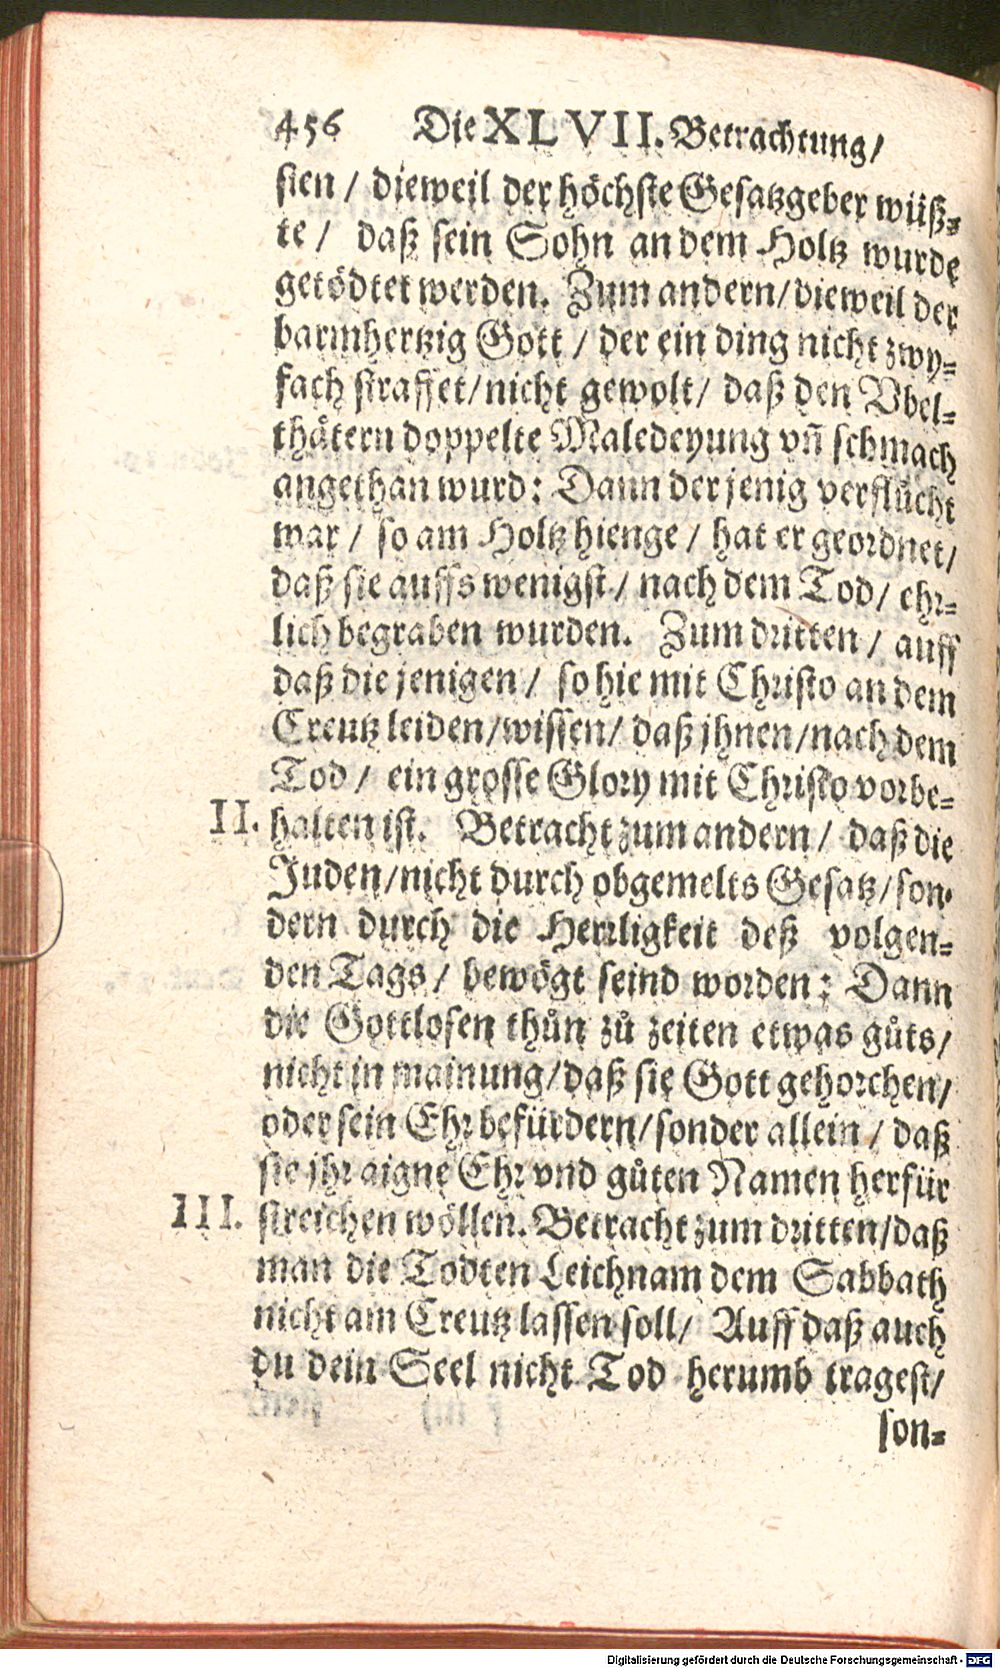 456 Die XLVII. Betrachtung/
sten / dieweil der höchste Gesatzgeber wüß⸗
te / daß sein Sohn an dem Holtz wurde
getödtet werden. Zum andern/dieweil der
barmhertzig Gott / der ein ding nicht zwy⸗
fach straffet/nicht gewolt/ daß den Vbel⸗
thätern doppelte Maledeyung vñ schmach
angethan wurd: Dann der jenig verflůcht
war / so am Holtz hienge / hat er geordnet/
daß sie auffs wenigst / nach dem Tod/ ehr⸗
lich begraben wurden. Zum dritten / auff
daß die jenigen / so hie mit Christo an dem
Creutz leiden/wissen/ daß jhnen/nach dem
Tod / ein grosse Glory mit Christo vorbe⸗
II. halten ist. Betracht zum andern / daß die
Juden/nicht durch obgemelts Gesatz/son⸗
dern durch die Herrligkeit deß volgen⸗
den Tags / bewögt seind worden: Dann
die Gottlosen thůn zů zeiten etwas gůts/
nicht in mainung/daß sie Gott gehorchen/
oder sein Ehr befürdern/sonder allein / daß
sie jhr aigne Ehr vnd gůten Namen herfür
III. streichen wöllen. Betracht zum dritten/daß
man die Todten Leichnam dem Sabbath
nicht am Creutz lassen soll/ Auff daß auch
du dein Seel nicht Tod herumb tragest/
son⸗
Digitalisierung gefördert durch die Deutsche Forschungsgemeinschaft - DFG